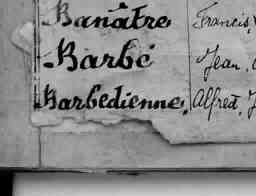 Banâtre Francis,
Barbé Jean,
Barbedienne, Alfred,